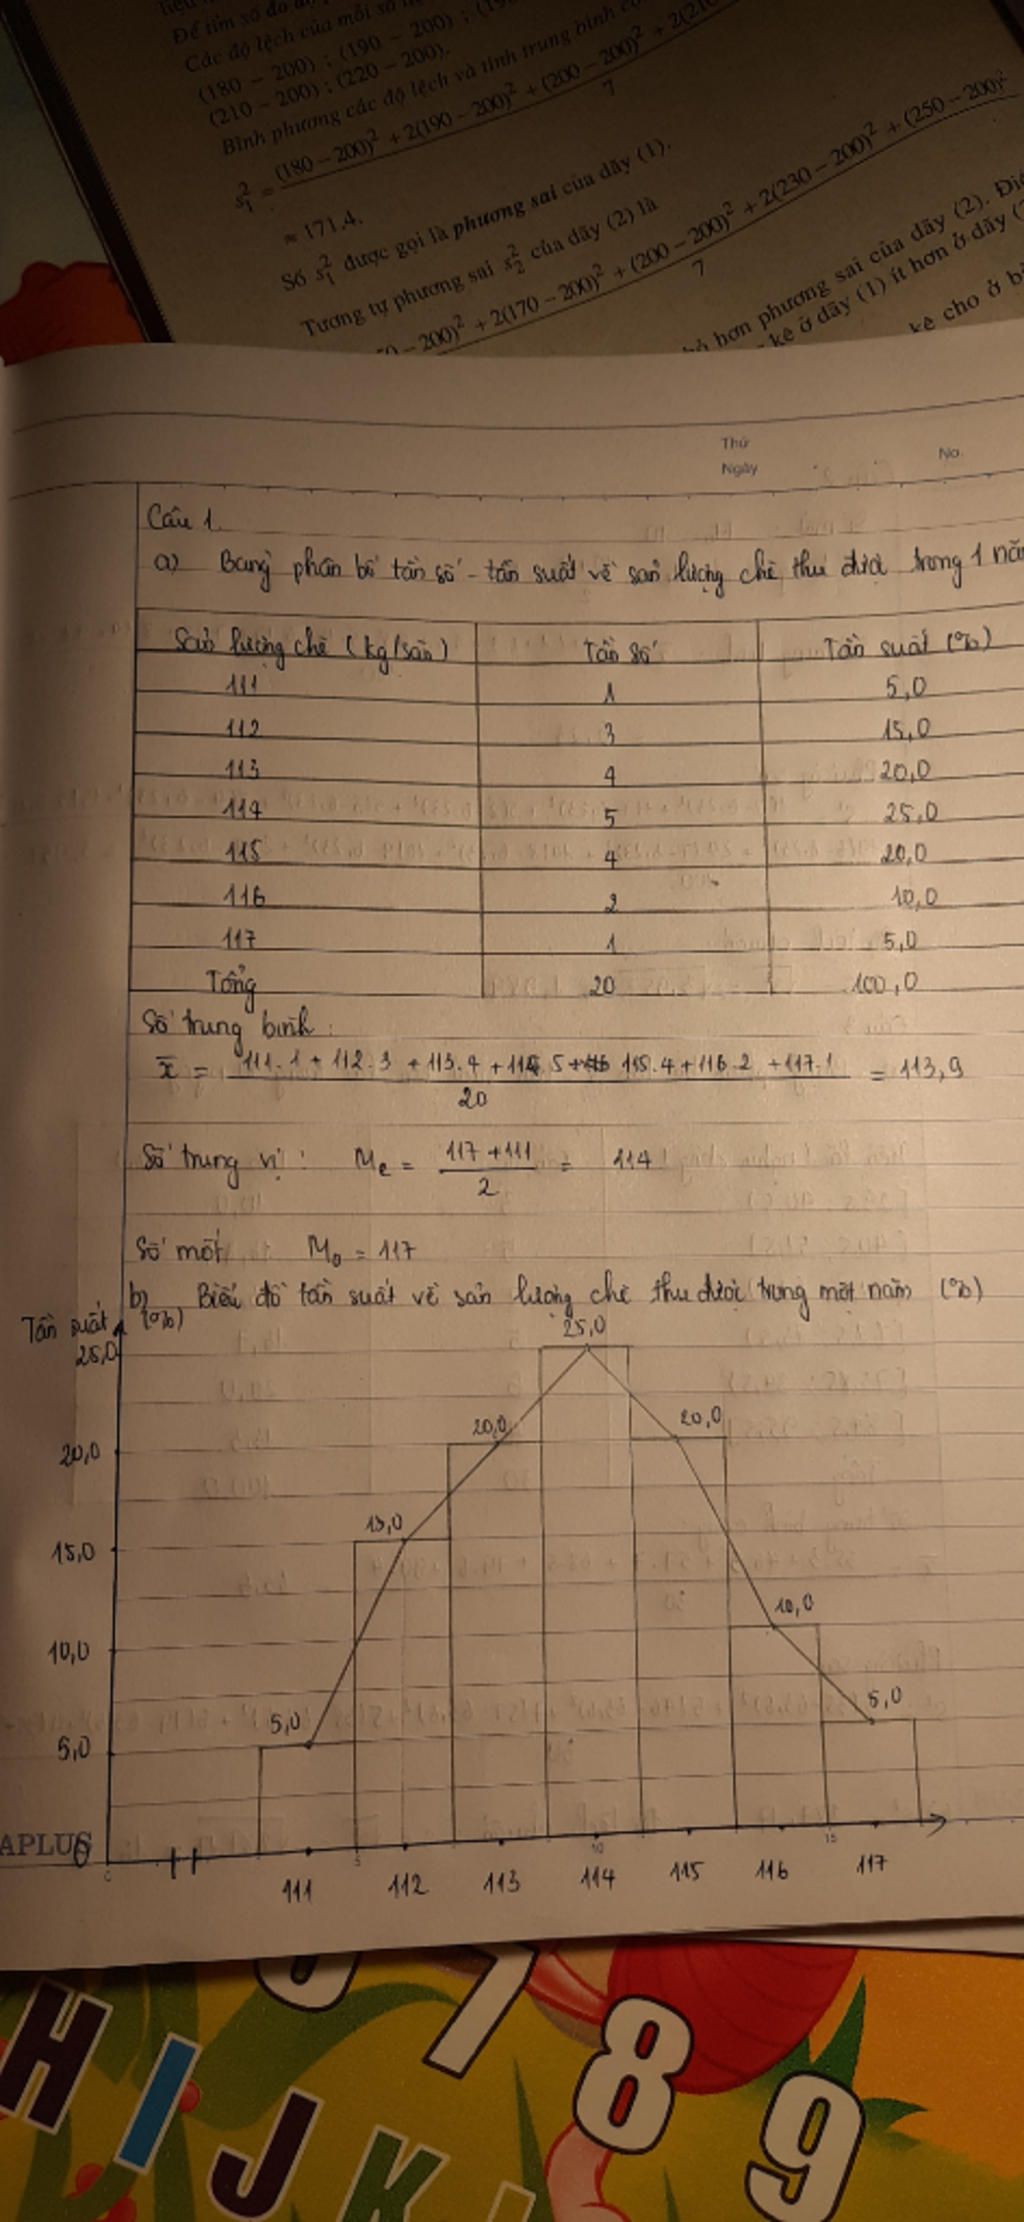 Để tìm số đo
Các độ lệch của mỗi số
(180 – 200) ; (190 – 200) ;
(210 – 200) ; (220 – 200).
Bình phương các độ lệch và tính trung bình
s₁² = (180 – 200)² + 2(190 – 200)² + (200 – 200)² + 2(210
7
≈ 171,4.
Số s₁² được gọi là phương sai của dãy (1).
Tương tự phương sai s₂² của dãy (2) là
– 200)² + 2(170 – 200)² + (200 – 200)² + 2(230 – 200)² + (250 – 200)²
7
hơn phương sai của dãy (2).
kê ở dãy (1) ít hơn ở dãy
kê cho ở
Thứ
Ngày
No.
Câu 1.
a) Bảng phân bố tần số - tần suất về sản lượng chè thu được trong 1 nă
Sản lượng chè (kg/sào) Tần số Tần suất (%)
111 1 5,0
112 3 15,0
113 4 20,0
114 5 25,0
115 4 20,0
116 2 10,0
117 1 5,0
Tổng 20 100,0
Số trung bình :
x̄ = 111.1 + 112.3 + 113.4 + 114.5 + 115.4 + 116.2 + 117.1 = 113,9
20
Số trung vị : Me = 117 + 111 = 114
2
Số mốt M₀ = 117
b) Biểu đồ tần suất về sản lượng chè thu được trong một năm (%)
Tần suất (%)
25,0
25,0
20,0
20,0
20,0
15,0
15,0
10,0
10,0
5,0
5,0
5,0
APLUS
0
0 5 10 15
111 112 113 114 115 116 117
7 8 9
H I J K